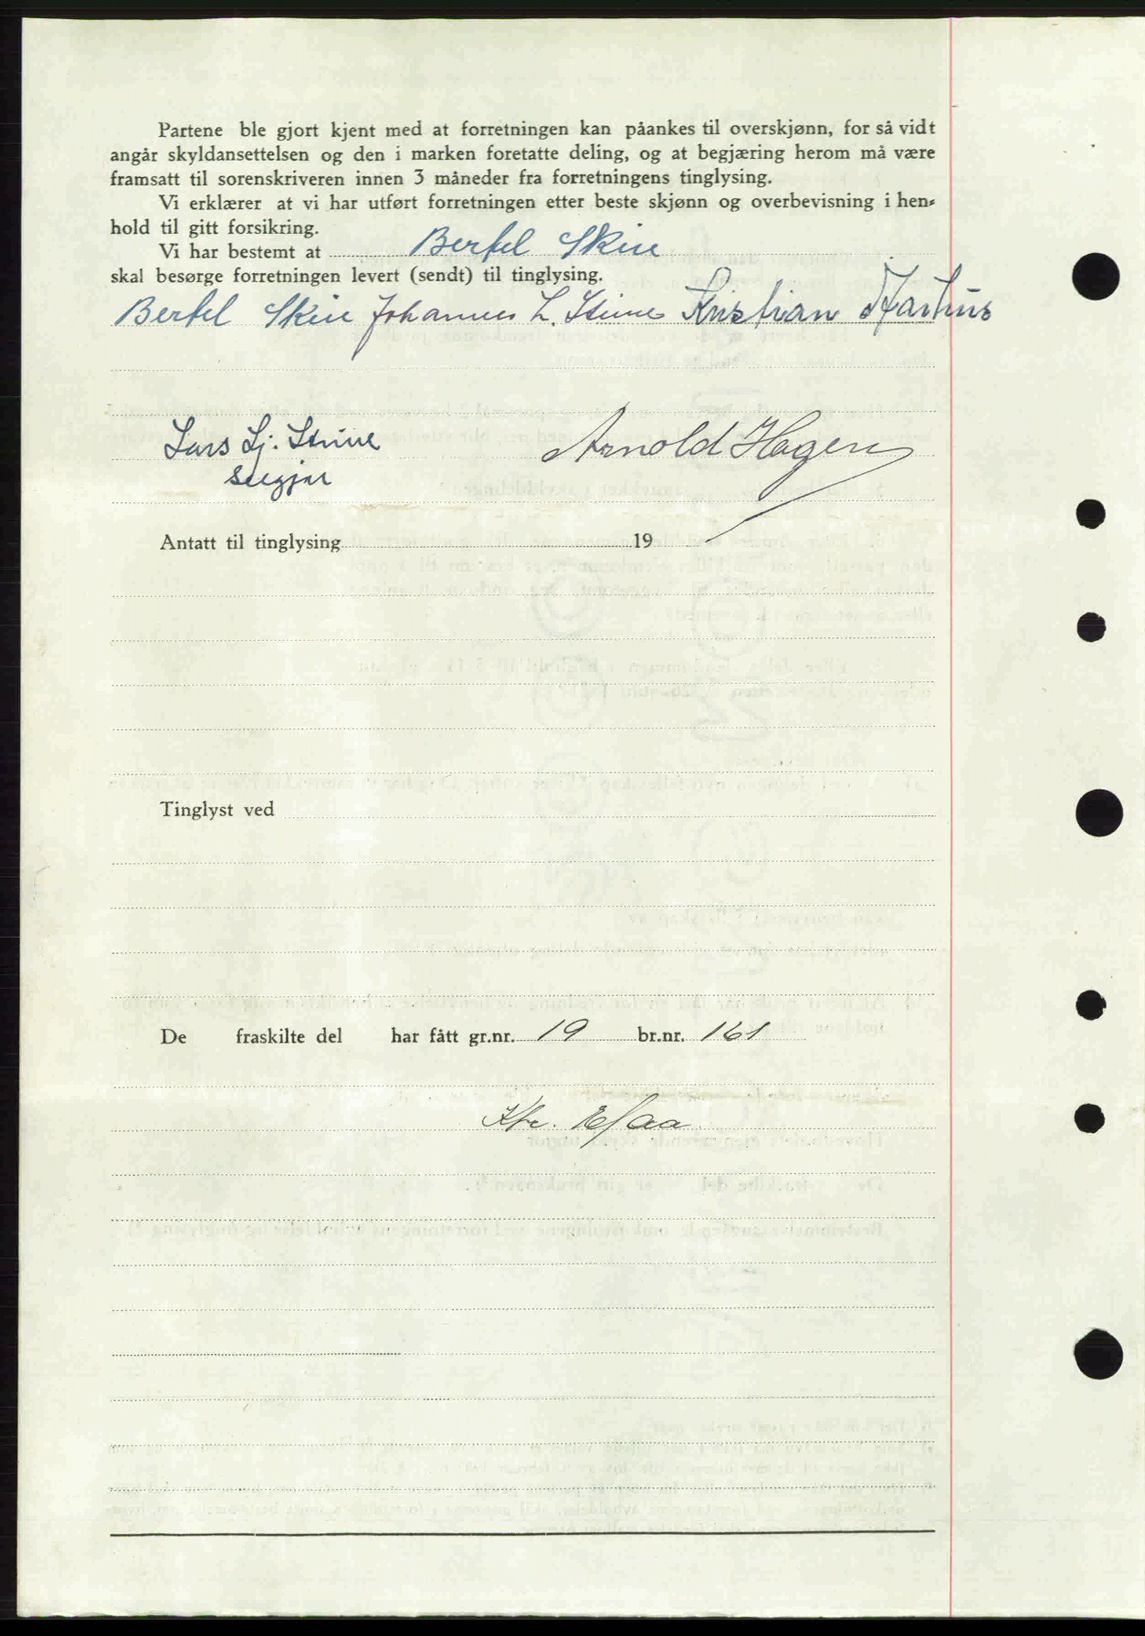 Partene ble gjort kjent med at forretningen kan påankes til overskjønn, for så vidt
angår skyldansettelsen og den i marken foretatte deling, og at begjæring herom må være
framsatt til sorenskriveren innen 3 måneder fra forretningens tinglysing.
Vi erklærer at vi har utført forretningen etter beste skjønn og overbevisning i hen-
hold til gitt forsikring.
Vi har bestemt at Bertel
skal besørge forretningen levert (sendt) til tinglysing.
Bertel Johannes L. Kristian
Lars Arnold Hagen
Antatt til tinglysing 19
Tinglyst ved
De fraskilte del har fått gr.nr. 19 br.nr. 161